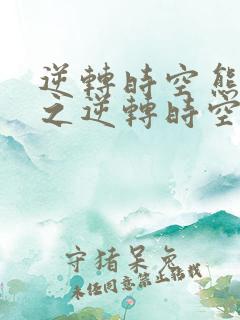 逆轉時空熊
之逆轉時空
守猪呆兔
未经同意禁止转载